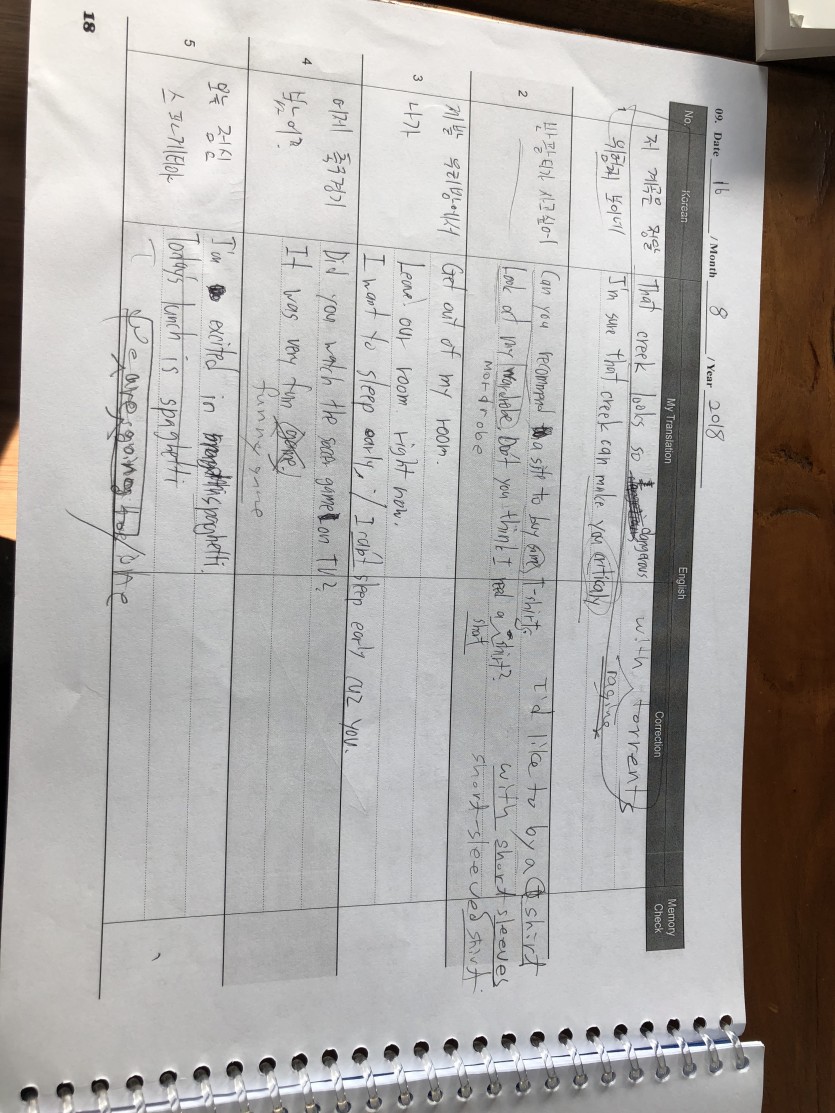 09. Date 16 / Month 8 / Year 2018
No. Korean My Translation English Correction Memory Check
1
저 계곡은 정말
위험해 보이네
That creek looks so dangerous with torrents
I'm sure that creek can make you
raging
2
반팔티가 사고싶어
Can you recommend a site to buy T-shirts. I'd like to by a T shirt
Look at my wardrobe. Don't you think I need a shirt? with short sleeves
wordrobe short short-sleeved shirt
3
제발 우리방에서
나가
Get out of my room.
Leave our room right now.
I want to sleep early, / I can't sleep early cuz you.
4
어제 축구경기
봤니?
Did you watch the soccer game on TV?
It was very fun game!
funny game
5
오늘 점심은
스파게티야
I'm excited in this spaghetti.
Today's lunch is spaghetti
We are going to
18